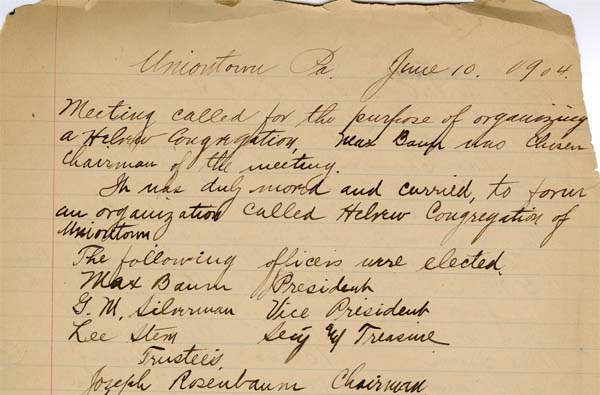 Uniontown Pa. June 10. 1904.
Meeting called for the purpose of organizing
a Hebrew Congregation, Max Baum was chosen
Chairman of the meeting.
It was duly moved and carried, to form
an organization called Hebrew Congregation of
Uniontown
The following officers were elected.
Max Baum President
G. M. Silverman Vice President
Lee Stern Secy & Treasure
Trustees,
Joseph Rosenbaum Chairman